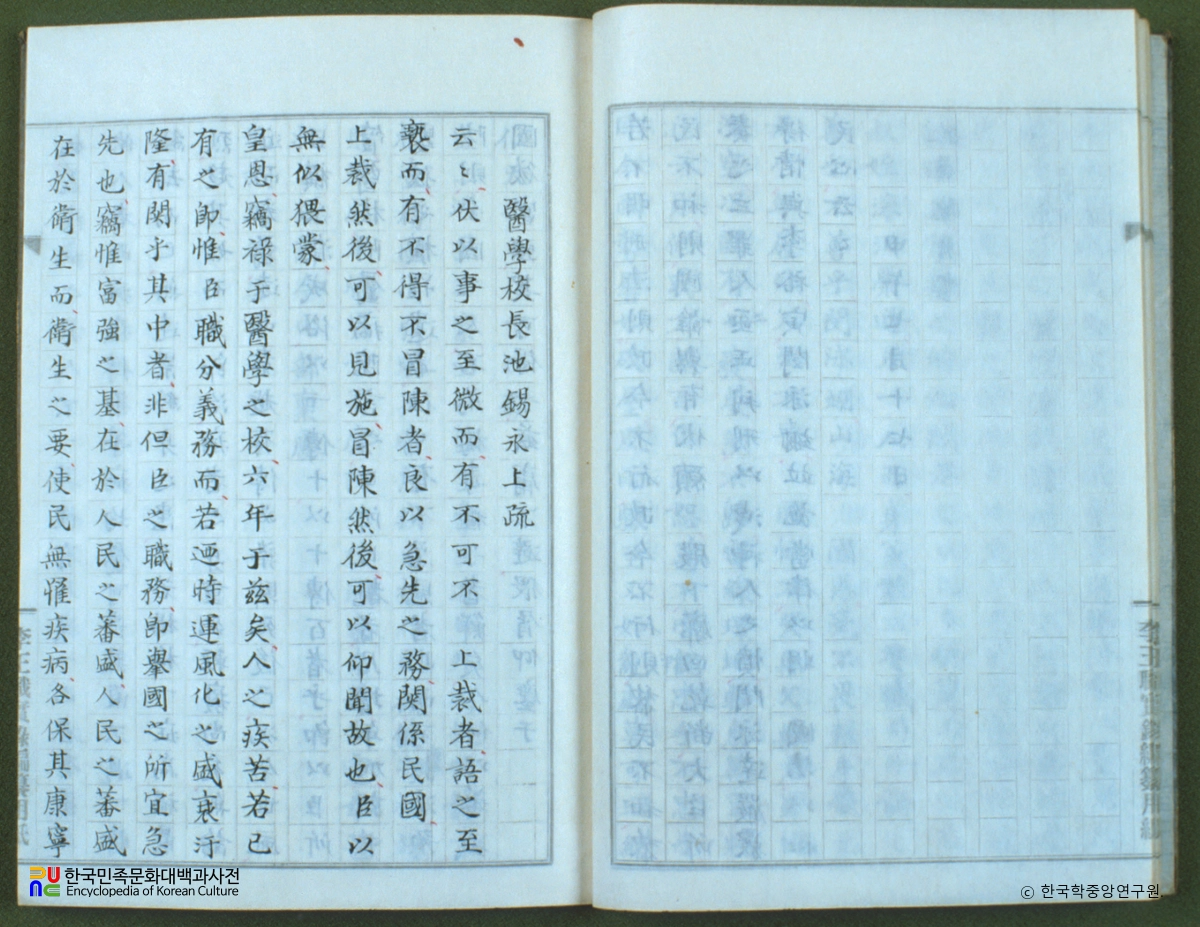 醫學校長池錫永上疏
云〻伏以事之至微而有不可不上裁者語之至
褻而有不得不冒陳者良以急先之務関係民國
上裁然後可以見施冒陳然後可以仰聞故也臣以
無似猥蒙
皇恩竊祿于醫學之校六年于兹矣人之疾苦若已
有之卽惟臣職分義務而若迺時運風化之盛衰汙
隆有関乎其中者非但臣之職務卽擧國之所宜急
先也竊惟富強之基在於人民之蕃盛人民之蕃盛
在於衛生而衛生之要使民無罹疾病各保其康寧
한국민족문화대백과사전
Encyclopedia of Korean Culture
© 한국학중앙연구원